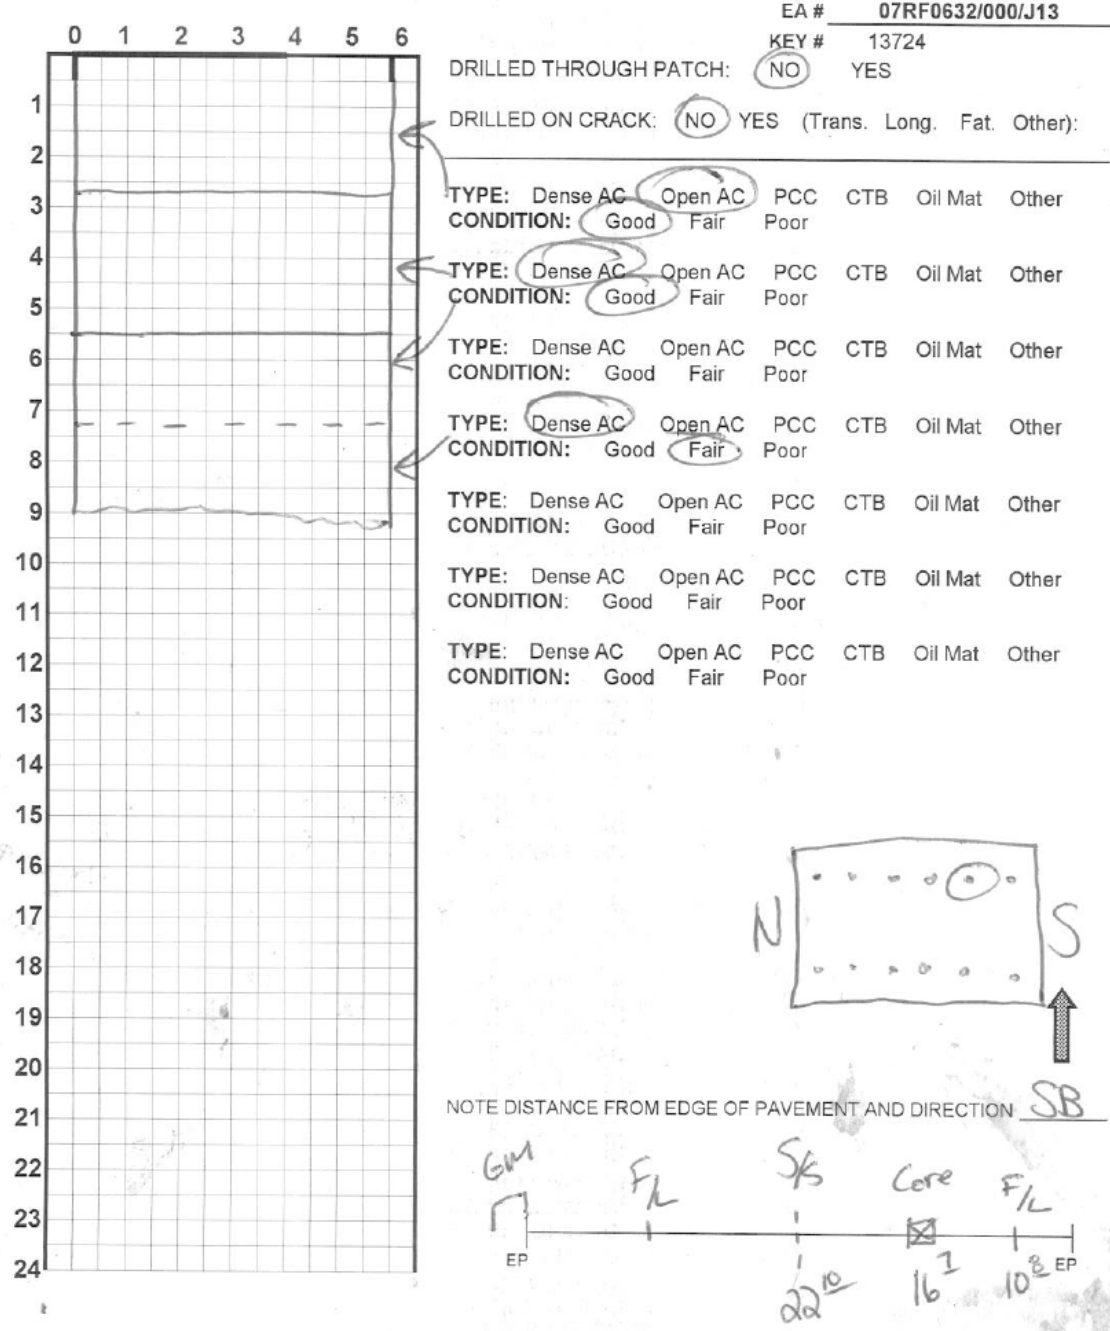 EA # 07RF0632/000/J13
KEY # 13724
DRILLED THROUGH PATCH: NO YES
DRILLED ON CRACK: NO YES (Trans. Long. Fat. Other):
TYPE: Dense AC Open AC PCC CTB Oil Mat Other
CONDITION: Good Fair Poor
TYPE: Dense AC Open AC PCC CTB Oil Mat Other
CONDITION: Good Fair Poor
TYPE: Dense AC Open AC PCC CTB Oil Mat Other
CONDITION: Good Fair Poor
TYPE: Dense AC Open AC PCC CTB Oil Mat Other
CONDITION: Good Fair Poor
TYPE: Dense AC Open AC PCC CTB Oil Mat Other
CONDITION: Good Fair Poor
TYPE: Dense AC Open AC PCC CTB Oil Mat Other
CONDITION: Good Fair Poor
TYPE: Dense AC Open AC PCC CTB Oil Mat Other
CONDITION: Good Fair Poor
0 1 2 3 4 5 6
1
2
3
4
5
6
7
8
9
10
11
12
13
14
15
16
17
18
19
20
21
22
23
24
N S
NOTE DISTANCE FROM EDGE OF PAVEMENT AND DIRECTION SB
F/L S/S Core F/L
EP EP
22 10 16 7 10 8